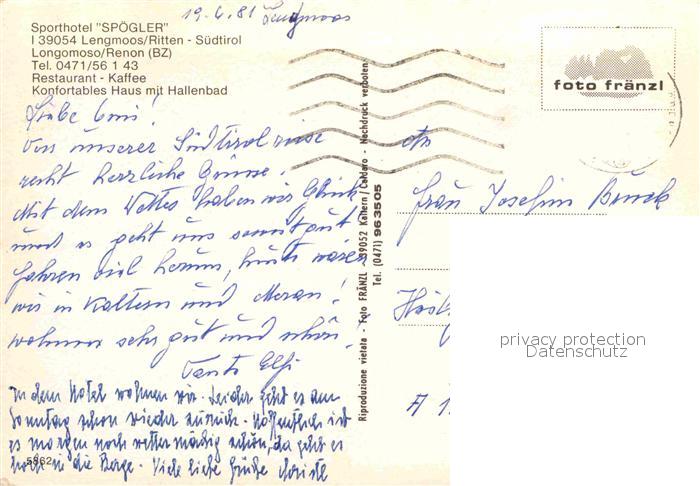 19.6.81 Lengmoos
Sporthotel "SPÖGLER"
I 39054 Lengmoos/Ritten - Südtirol
Longomoso/Renon (BZ)
Tel. 0471/56 1 43
Restaurant - Kaffee
Konfortables Haus mit Hallenbad
Liebe Omi!
Von unserer Südtirolreise
recht herzliche Grüsse.
Mit dem Wetter haben wir Glück
und es geht uns sonst gut
fahren viel herum, heute waren
wir in Kaltern und Meran!
wohnen sehr gut und schön!
Tante Elfi
In dem Hotel wohnen wir. Leider geht es am
Sonntag schon wieder zurück. Hoffentlich ist
es morgen noch wettermäßig schön, da geht es
noch in die Berge. Viele liebe Grüße Christl
5862
Riproduzione vietata - Foto FRÄNZL 39052 Kaltern/Caldaro - Nachdruck verboten
Tel. (0471) 963505
foto fränzl
An
Frau Josefin Bruck
A 1
privacy protection
Datenschutz